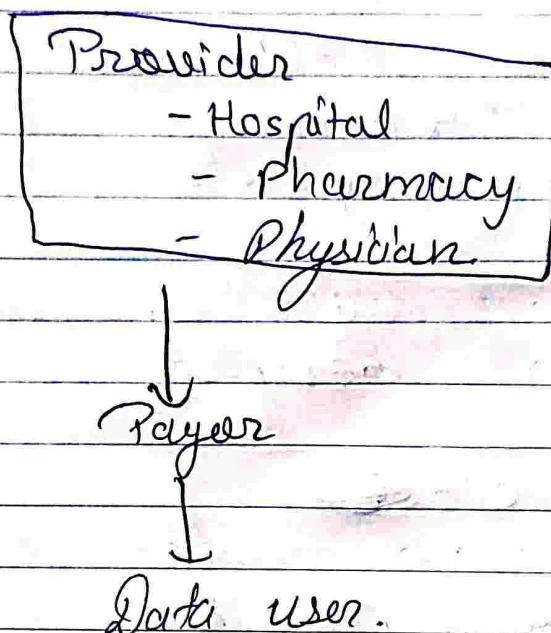 Provider
- Hospital
- Pharmacy
- Physician.
Payer
Data user.